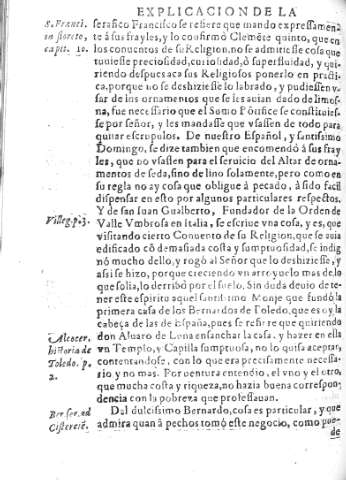 EXPLICACION DE LA
S. Franci.
in florete,
capit. 10.
serafico Francisco se refiere que mando expressamen
te á sus frayles, y lo confirmó Clemēte quinto, que en
los conuentos de su Religion, no se admitiesse cosa que
tuuiesse preciosidad, curiosidad, ó superfluidad, y qui-
riendo despues aca sus Religiosos ponerlo en practi-
ca, porque no se deshiziesse lo labrado, y pudiessen v-
sar de los ornamentos que se les auian dado de limos-
na, fue necessario que el Sumo Pōtifice se constituies-
se por señor, y les mandasse que vsassen de todo para
quitar escrupulos. De nuestro Español, y santissimo
Domingo, se dize tambien que encomendó á sus fray
les, que no vsassen para el seruicio del Altar de orna-
mentos de seda, sino de lino solamente, pero como en
su regla no ay cosa que obligue à pecado, â sido facil
dispensar en esto por algunos particulares respectos.
Villeg. p. 3.
Y de san Iuan Gualberto, Fundador de la Orden de
Valle Vmbrosa en Italia, se escriue vna cosa, y es, que
visitando cierto Conuento de su Religion, que se auia
edificado cō demasiada costa y sumptuosidad, se indig
nó mucho dello, y rogó al Señor que lo deshiziesse, y
assi se hizo, porque creciendo vn arroyuelo mas de lo
que solia, lo derribó por el suelo. Sin duda deuio de te-
ner este espiritu aquel santissimo Monje que fundó la
primera casa de los Bernardos de Toledo, que es oy la
cabeça de las de España, pues se refiere que quiriendo
Alcocer,
historia de
Toledo. p.
2.
don Aluaro de Luna ensanchar la casa, y hazer en ella
vn Templo, y Capilla sumptuosa, no lo quiso aceptar,
contentandose, con lo que era precisamente necessa-
rio y no mas. Por uentura entendio, el vno y el otro,
que mucha costa y riqueza, no hazia buena correspon
dencia con la pobreza que professauan.
Ber. ser. ad
Cisterciē.
Dal dulcissimo Bernardo, cosa es particular, y que
admira quan à pechos tomó este negocio, como pue-
de